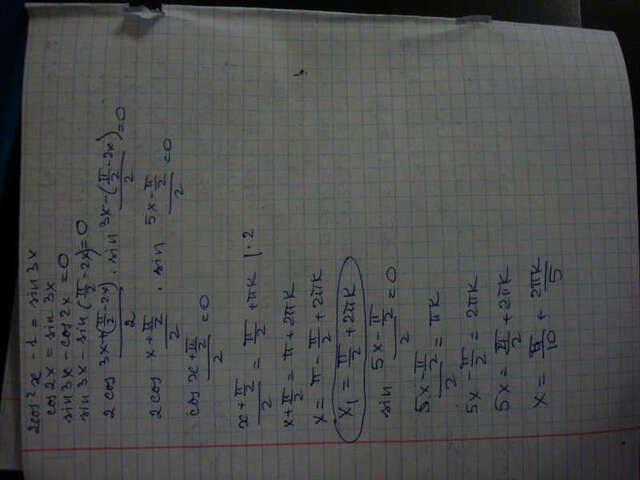 2cos²x - 1 = sin 3x
cos 2x = sin 3x
sin 3x - cos 2x = 0
sin 3x - sin(π/2 - 2x) = 0
2 cos (3x + (π/2 - 2x))/2 · sin (3x - (π/2 - 2x))/2 = 0
2cos (x + π/2)/2 · sin (5x - π/2)/2 = 0
cos (x + π/2)/2 = 0
(x + π/2)/2 = π/2 + πk | · 2
x + π/2 = π + 2πk
x = π - π/2 + 2πk
x₁ = π/2 + 2πk
sin (5x - π/2)/2 = 0
(5x - π/2)/2 = πk
5x - π/2 = 2πk
5x = π/2 + 2πk
x = π/10 + 2πk/5